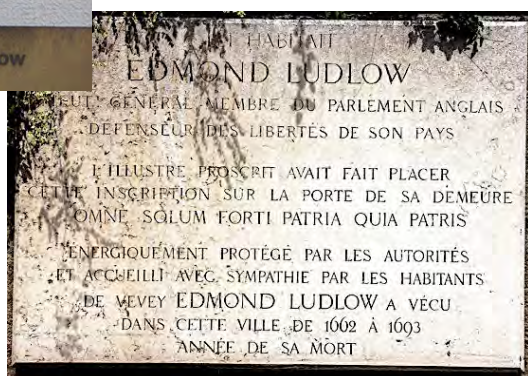 ow
HABITAIT
EDMOND LUDLOW
LIEUT. GÉNÉRAL MEMBRE DU PARLEMENT ANGLAIS
DÉFENSEUR DES LIBERTÉS DE SON PAYS
L'ILLUSTRE PROSCRIT AVAIT FAIT PLACER
CETTE INSCRIPTION SUR LA PORTE DE SA DEMEURE
OMNE SOLUM FORTI PATRIA QUIA PATRIS
ÉNERGIQUEMENT PROTÉGÉ PAR LES AUTORITÉS
ET ACCUEILLI AVEC SYMPATHIE PAR LES HABITANTS
DE VEVEY EDMOND LUDLOW A VÉCU
DANS CETTE VILLE DE 1662 À 1693
ANNÉE DE SA MORT